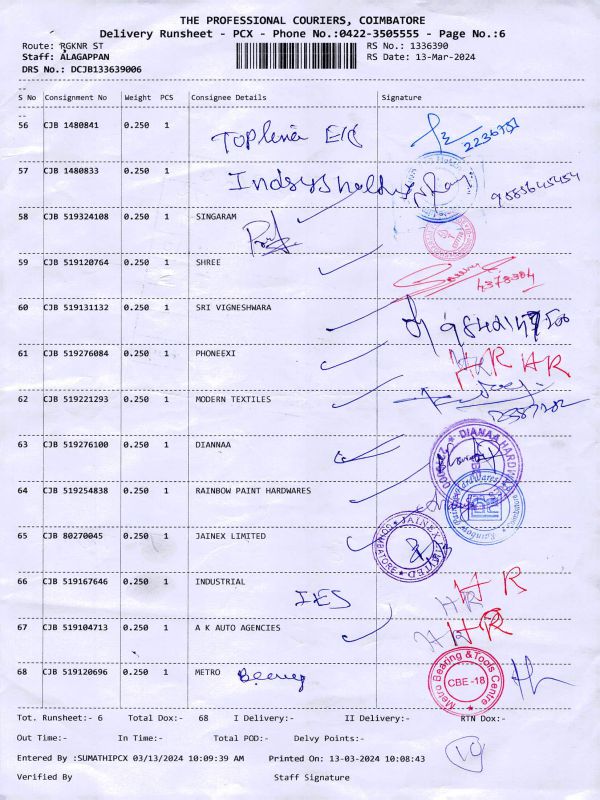 THE PROFESSIONAL COURIERS, COIMBATORE
Delivery Runsheet - PCX - Phone No.:0422-3505555 - Page No.:6
Route: RGKNR ST RS No.: 1336390
Staff: ALAGAPPAN RS Date: 13-Mar-2024
DRS No.: DCJB133639006
--
S No Consignment No Weight PCS Consignee Details Signature
--
56 CJB 1480841 0.250 1
57 CJB 1480833 0.250 1
58 CJB 519324108 0.250 1 SINGARAM
59 CJB 519120764 0.250 1 SHREE
4378384
60 CJB 519131132 0.250 1 SRI VIGNESHWARA
61 CJB 519276084 0.250 1 PHONEEXI HR HR
62 CJB 519221293 0.250 1 MODERN TEXTILES
63 CJB 519276100 0.250 1 DIANNAA DIANAA HARDWARE
64 CJB 519254838 0.250 1 RAINBOW PAINT HARDWARES
65 CJB 80270045 0.250 1 JAINEX LIMITED JAINEX LIMITED COIMBATORE
66 CJB 519167646 0.250 1 INDUSTRIAL IES HR HR
67 CJB 519104713 0.250 1 A K AUTO AGENCIES HR HR
68 CJB 519120696 0.250 1 METRO Metro Bearing & Tools Centre CBE -18
Tot. Runsheet:- 6 Total Dox:- 68 I Delivery:- II Delivery:- RTN Dox:-
Out Time:- In Time:- Total POD:- Delvy Points:-
Entered By :SUMATHIPCX 03/13/2024 10:09:39 AM Printed On: 13-03-2024 10:08:43
Verified By Staff Signature